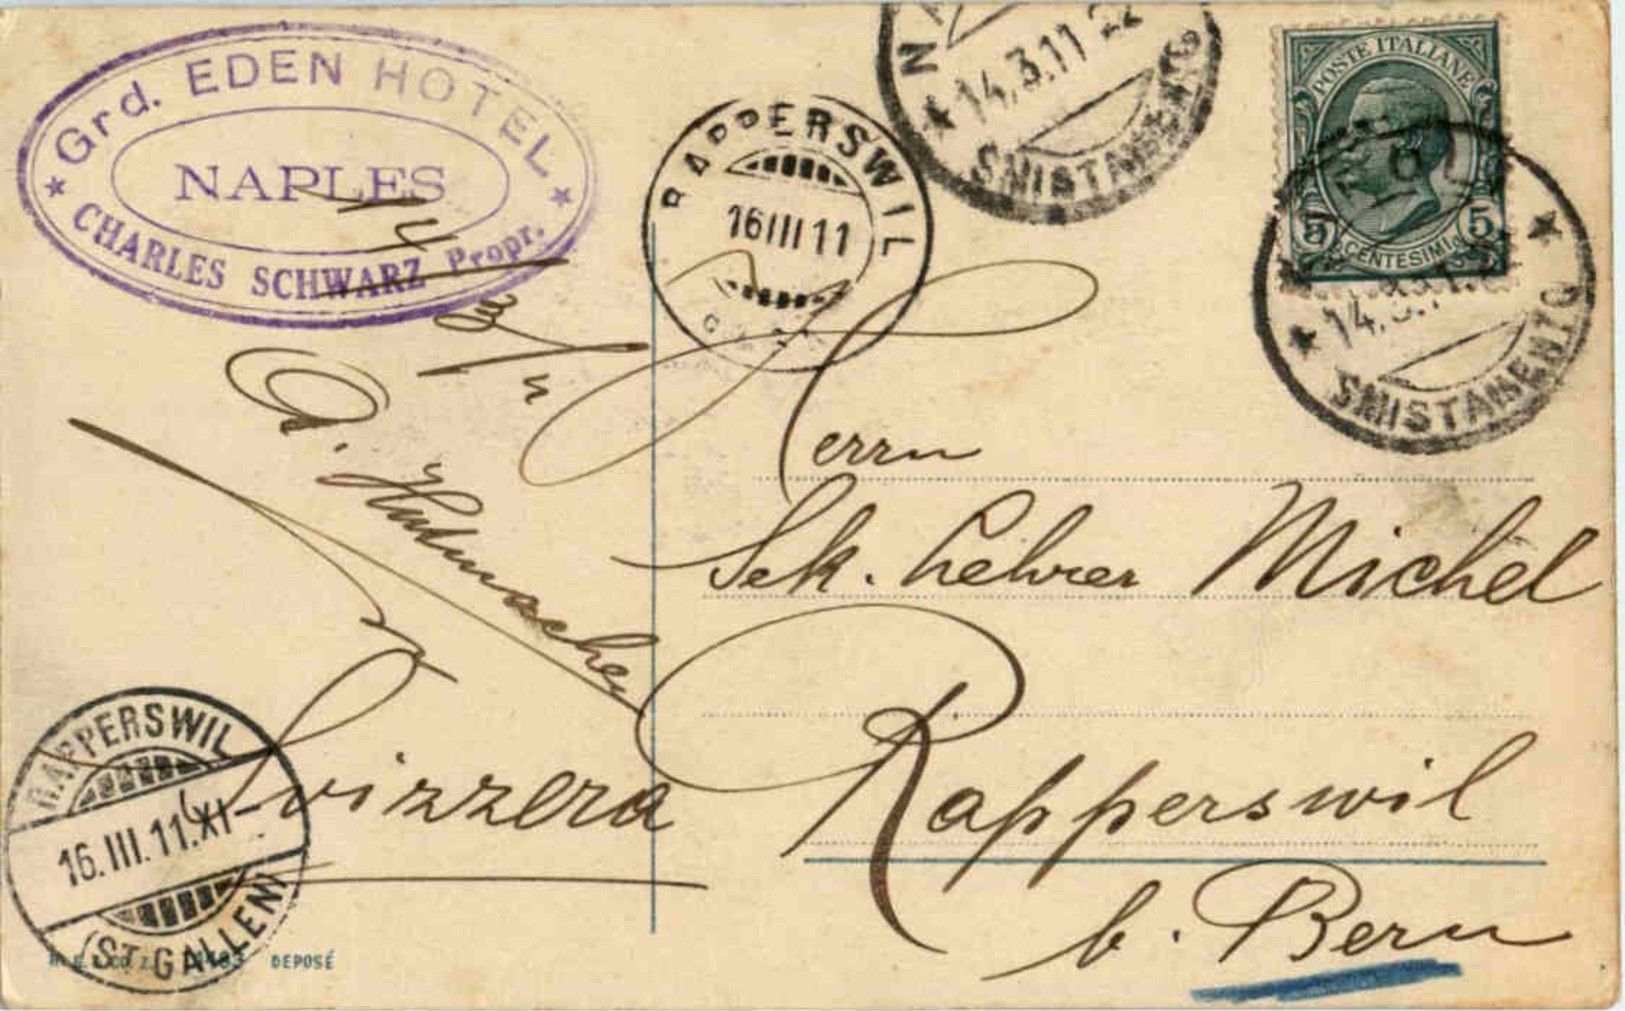 Grd. EDEN HOTEL
NAPLES
CHARLES SCHWARZ Propr.
RAPPERSWIL
16 III 11
14.3.11 22
SMISTAMENTO
POSTE ITALIANE
5 5
CENTESIMI
SMISTAMENTO
14/3/11
A. Hutmacher
Herrn
Sek. Lehrer Michel
Rapperswil
b. Bern
Svizzera
RAPPERSWIL
16.III.11.XI-
(ST. GALLEN)
DEPOSÉ